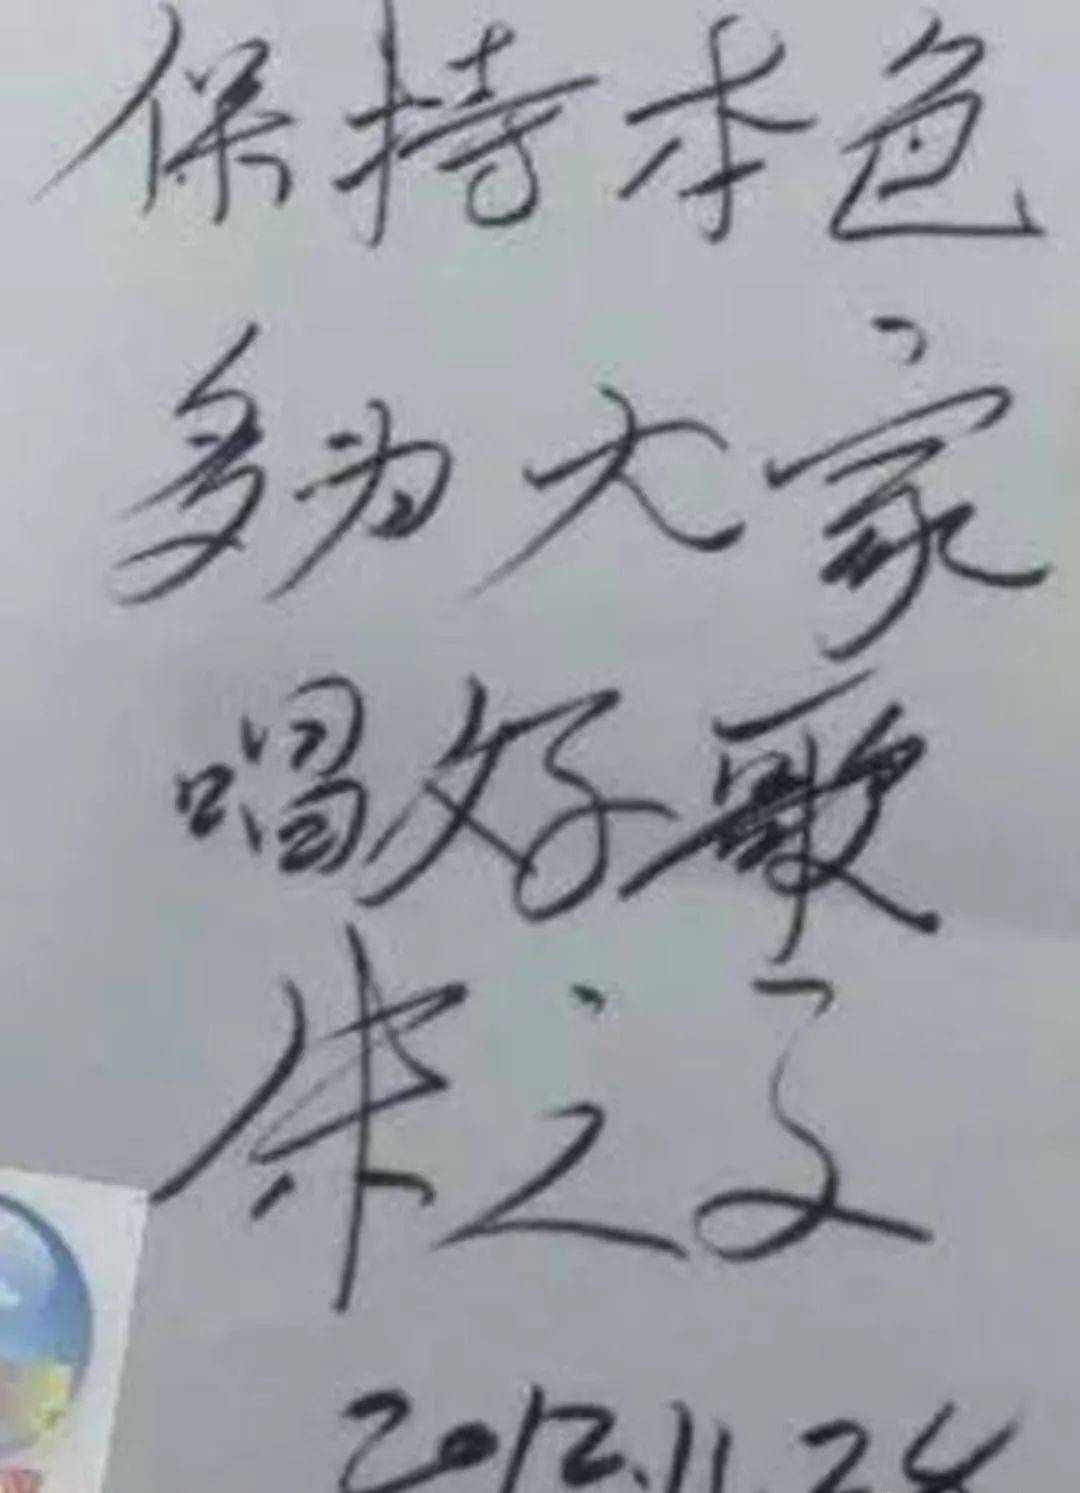 保持本色
多为大家
唱好歌
朱之文
2012.11.28